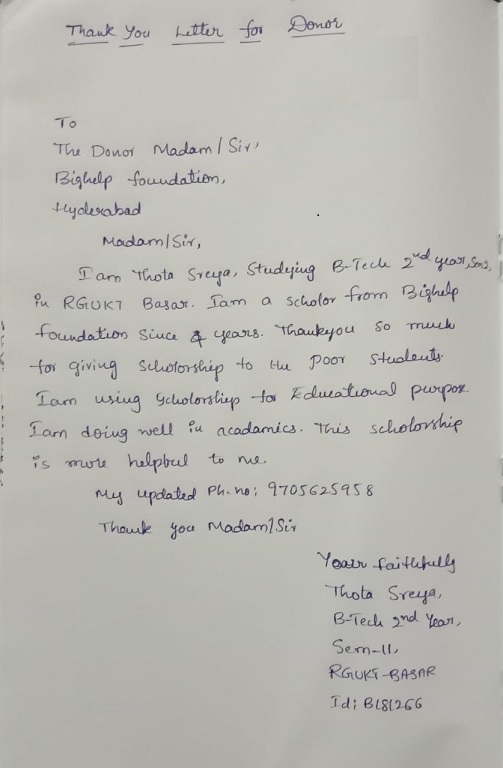 Thank You Letter for Donor
To
The Donor Madam/Sir,
Bighelp foundation,
Hyderabad
Madam/Sir,
I am Thota Sreya, Studying B-Tech 2nd year, Sem2,
in RGUKT Basar. I am a scholor from Bighelp
foundation since 4 years. Thankyou so much
for giving Scholorship to the poor Students.
I am using Scholorship for Educational purpose.
I am doing well in acadamics. This scholorship
is more helpful to me.
My updated Ph.no: 9705625958
Thank you Madam/Sir
Your faithfully
Thota Sreya,
B-Tech 2nd Year,
Sem-II,
RGUKT-BASAR
Id: B181266